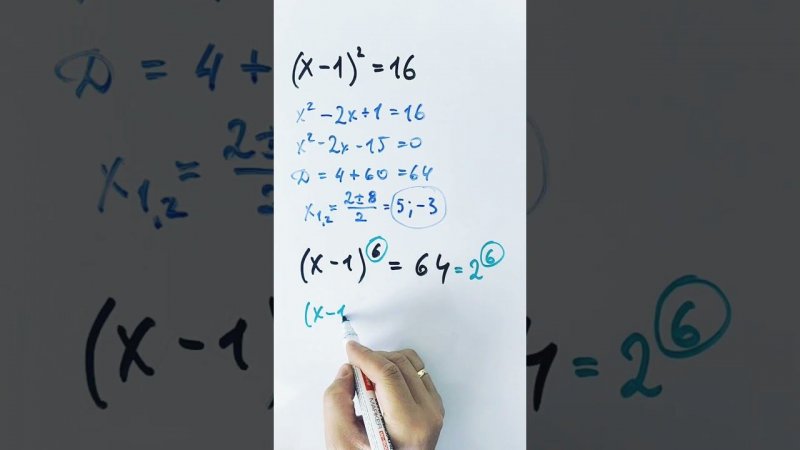 (x-1)² = 16
x² - 2x + 1 = 16
x² - 2x - 15 = 0
D = 4 + 60 = 64
x₁,₂ = (2±8)/2 = 5; -3
(x-1)⁶ = 64 = 2⁶
(x-1